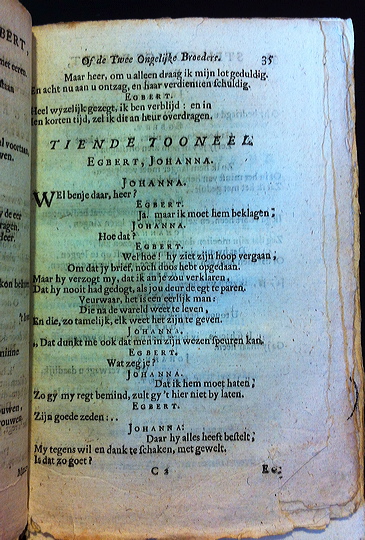 Of de Twee Ongelijke Broeders. 35
Maar heer, om u alleen draag ik mijn lot geduldig.
En acht nu aan u ontzag, en haar verdiensten schuldig.
EGBERT.
Heel wyzelijk gezegt, ik ben verblijd: en in
een korten tijd, zel ik die an heur overdragen.
TIENDE TOONEEL.
EGBERT, JOHANNA.
JOHANNA.
WEl benje daar, heer?
EGBERT.
Ja. maar ik moet hem beklagen;
JOHANNA.
Hoe dat?
EGBERT.
Wel hoe! hy ziet zijn hoop vergaan;
Om dat jy brief, noch doos hebt opgedaan.
Maar hy verzogt my, dat ik an je zou verklaren,
Dat hy nooit had gedogt, als jou deur de egt te paren.
Veurwaar, het is een eerlijk man:
Die na de wareld weet te leven,
En die, zo tamelijk, elk weet het zijn te geven.
JOHANNA.
,, Dat dunkt me ook dat men in zijn wezen speuren kan.
EGBERT.
Wat zeg je?
JOHANNA.
Dat ik hem moet haten;
Zo gy my regt bemind, zult gy 't hier niet by laten.
EGBERT.
Zijn goede zeden: . .
JOHANNA:
Daar hy alles heeft bestelt;
My tegens wil en dank te schaken, met gewelt.
Is dat zo goet?
C 2